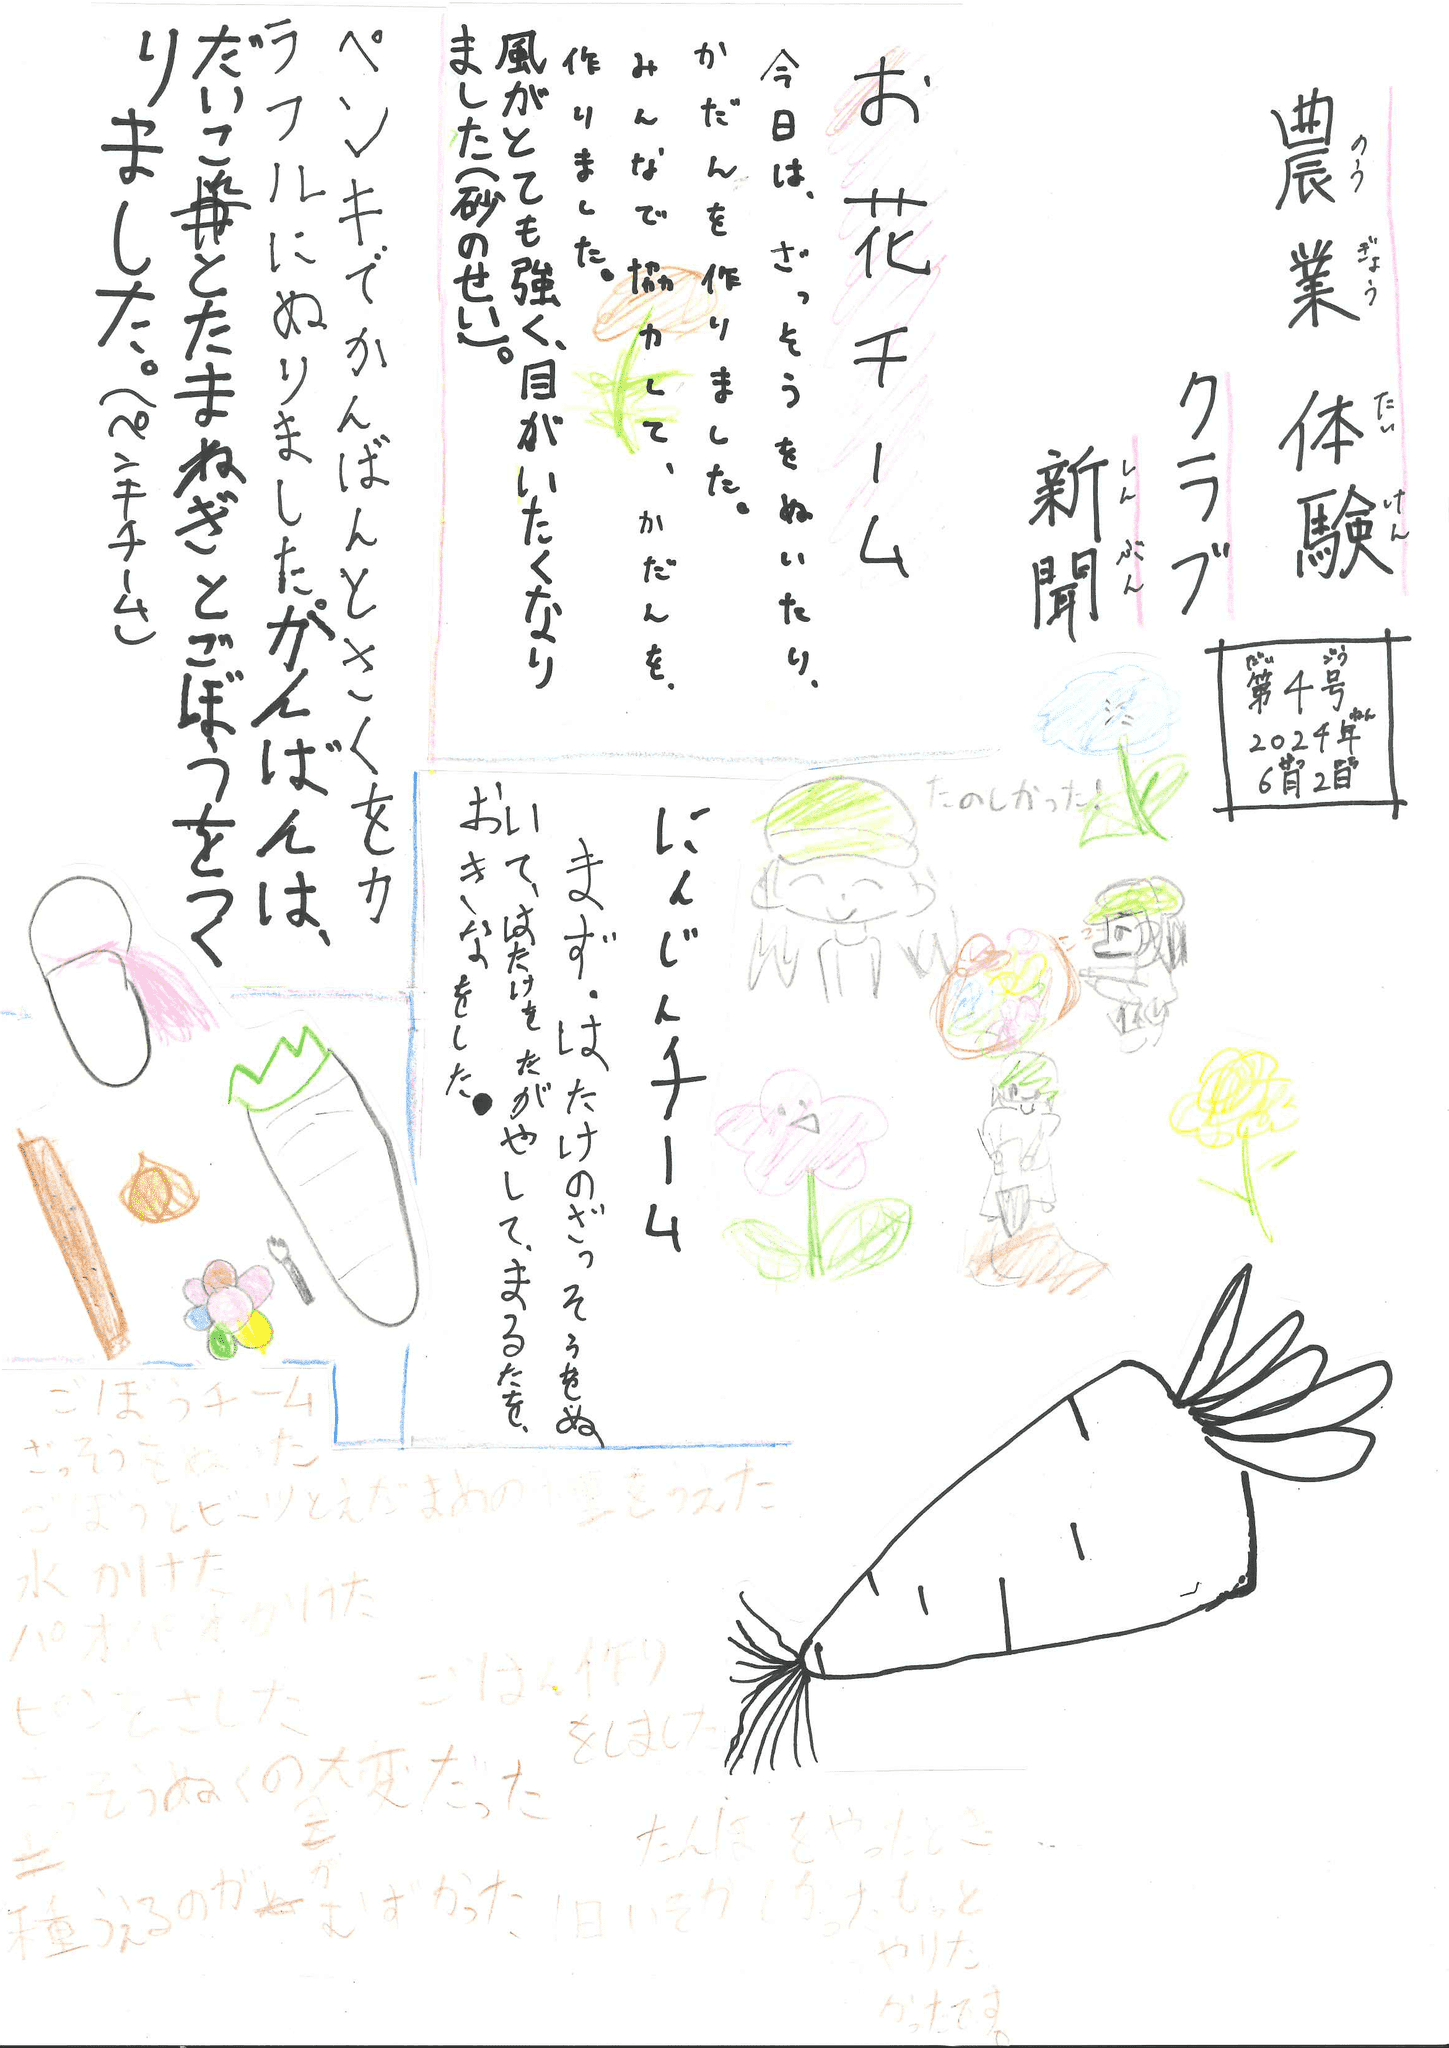 農業体験
のうぎょうたいけん
クラブ
新聞
しんぶん
第4号
だい ごう
2024年
ねん
6月2日
お花チーム
今日は、ざっそうをぬいたり、
かだんを作りました。
みんなで協力して、かだんを、
作りました。
風がとても強く、目がいたくなり
ました(砂のせい)。
ペンキでかんばんとさくをカ
ラフルにぬりましたかんばんは、
だいこんとたまねぎとごぼうをつく
りました。(ペンキチーム)
たのしかった!
にんじんチーム
まず、はたけのざっそうをぬ
いて、はたけをたがやして、まるたを、
おきなをした。
ごぼうチーム
ざっそうをぬいた
ごぼうとビーツとえだまめの種をうえた
水かけた
パオパオかけた
ピンとさした
ごはん作り
をしました
ざっそうぬくの大変だった
種うえるのがむずかった
たんぼをやったとき…
1日いそがしかったもっと
やりた
かったです。